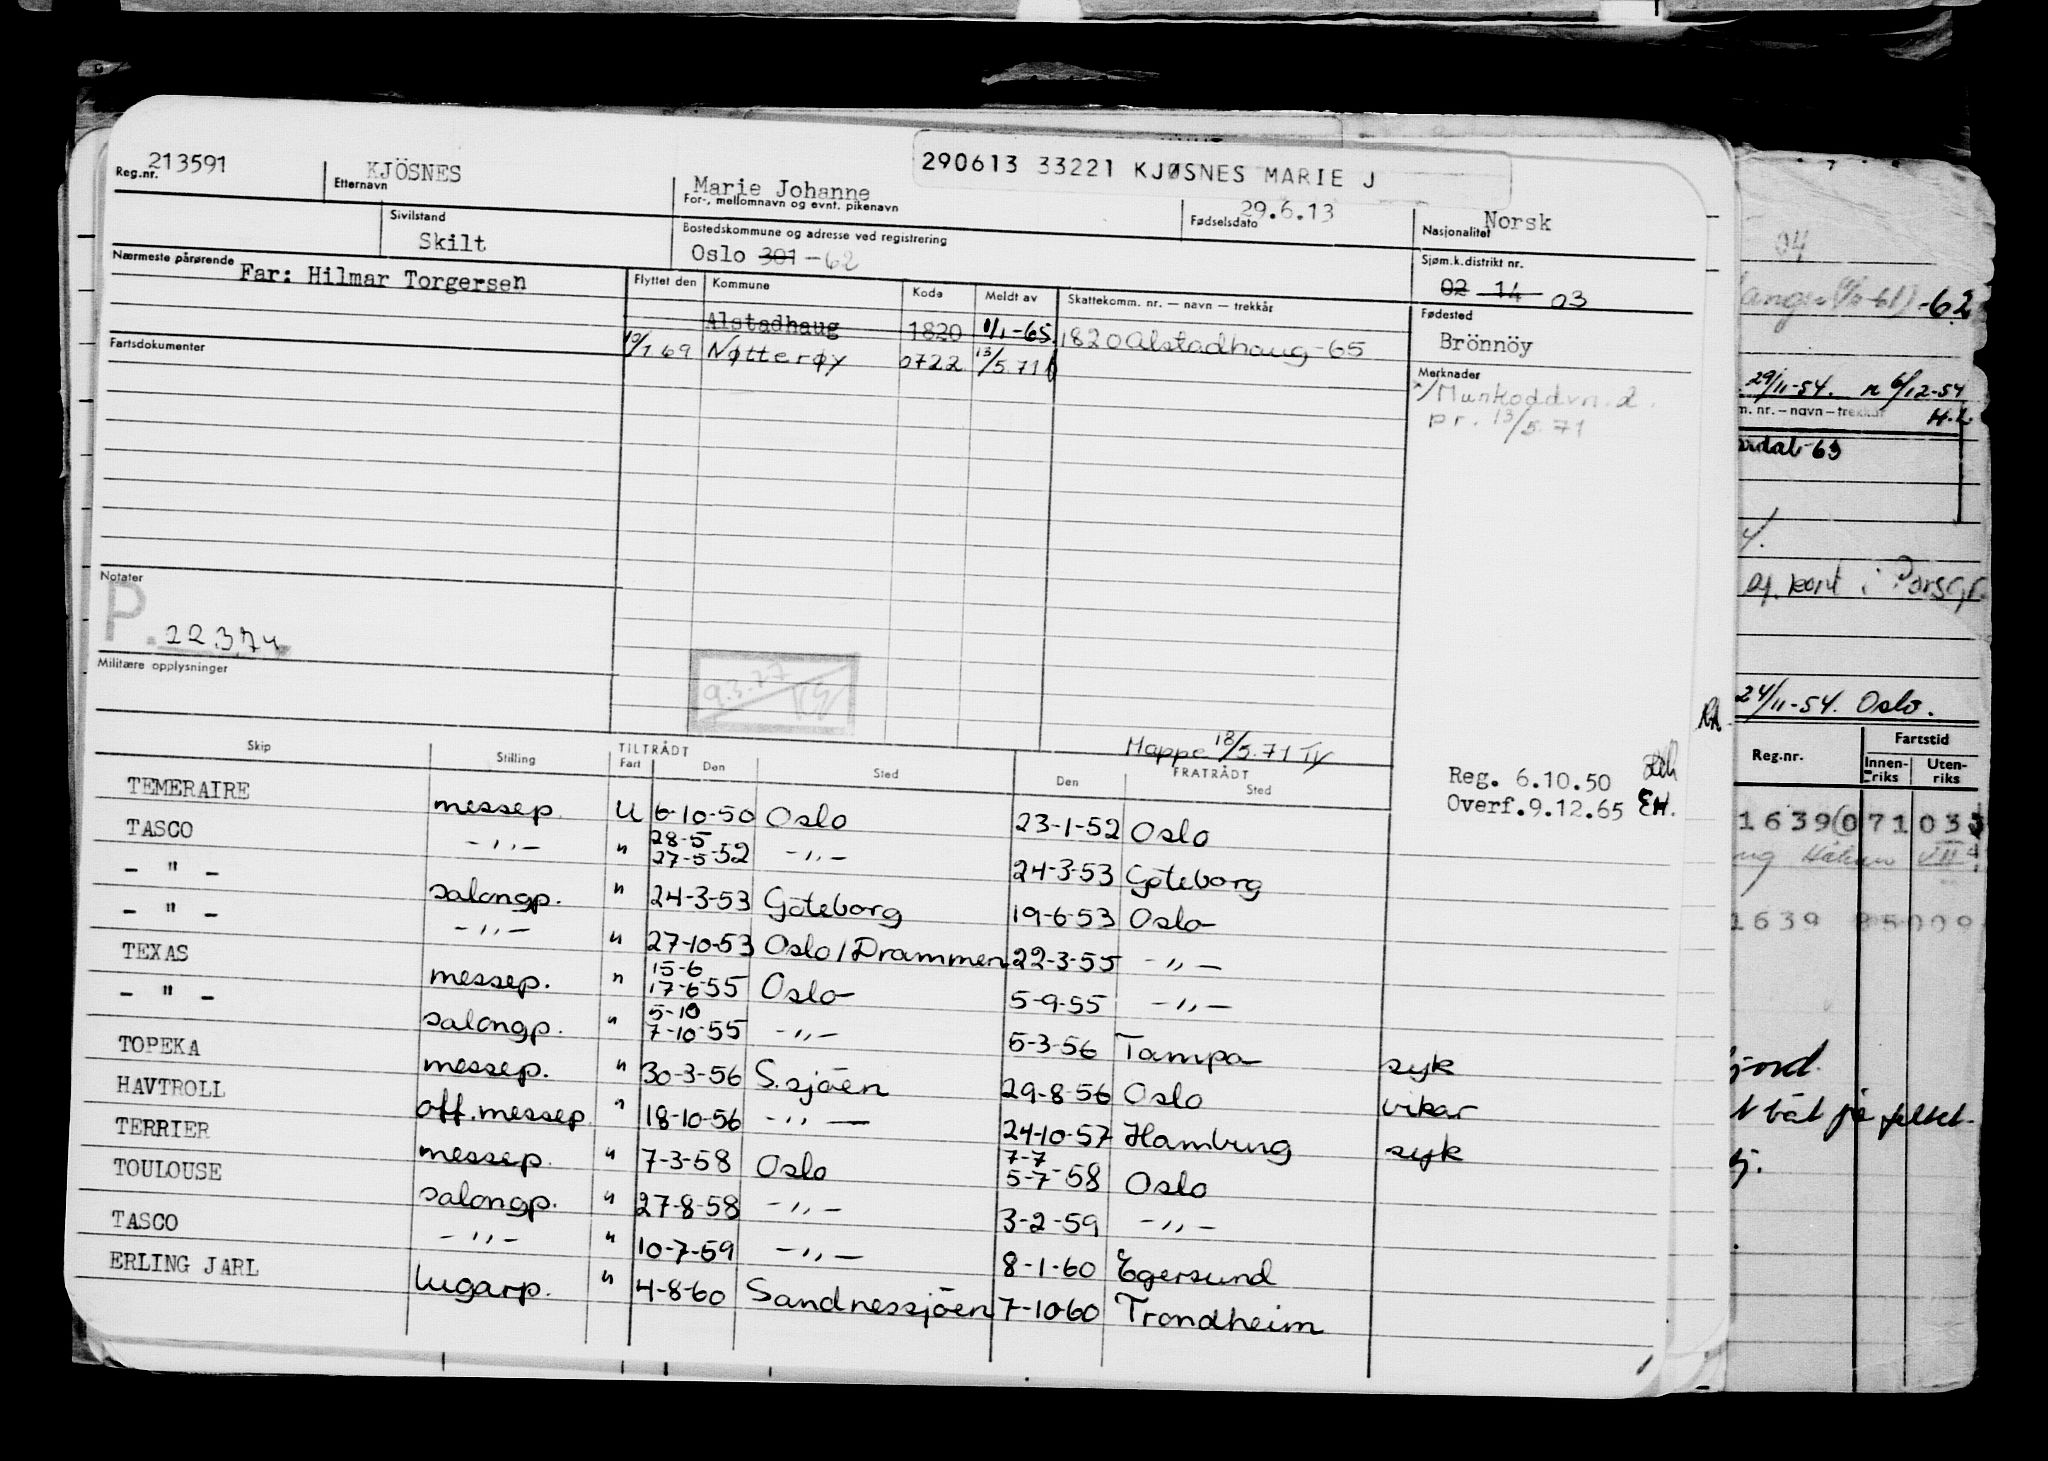 213591 KJÖSNES Marie Johanne 290613 33221 KJØSNES MARIE J
Reg.nr. Etternavn For-, mellomnavn og evnt. pikenavn
29.6.13 Norsk
Fødselsdato Nasjonalitet
Sivilstand Bostedskommune og adresse ved registrering
Skilt Oslo 301 -62
Sjøm.k.distrikt nr.
02 14 03
Nærmeste pårørende
Far: Hilmar Torgersen
Flyttet den Kommune Kode Meldt av Skattekomm. nr. — navn — trekkår
Fødested
Brönnöy
Alstadhaug 1820 1/1-65 1820 Alstadhaug-65
10/1 69 Nøtterøy 0722 13/5.71
Fartsdokumenter
Merknader
pr. 13/5.71
Notater
P. 22.3.74
Militære opplysninger
9.3.77
Mappe 18/5.71 Ty
Reg. 6.10.50
Overf.9.12.65 EH.
TILTRÅDT FRATRÅDT
Skip Stilling Fart Den Sted Den Sted
TEMERAIRE messep. U 6-10-50 Oslo 23-1-52 Oslo
TASCO -"- " 28-5 27-5-52 -"- 24-3-53 Göteborg
- " - salongp. " 24-3-53 Göteborg 19-6-53 Oslo
- " - -"- " 27-10-53 Oslo/Drammen 22-3-55 -"-
TEXAS messep. " 15-6 17-6-55 Oslo 5-9-55 -"-
- " - salongp. " 5-10 7-10-55 -"- 5-3-56 Tampa syk
TOPEKA messep. " 30-3-56 S.sjöen 29-8-56 Oslo vikar
HAVTROLL off.messep. " 18-10-56 -"- 24-10-57 Hamburg syk
TERRIER messep. " 7-3-58 Oslo 7-7 5-7-58 Oslo
TOULOUSE salongp. " 27-8-58 -"- 3-2-59 -"-
TASCO -"- " 10-7-59 -"- 8-1-60 Egersund
ERLING JARL lugarp. " 4-8-60 Sandnessjöen 7-10-60 Trondheim
04
-62
29/11-54. 6/12-54
m. nr. — navn — trekkår H.L.
-63
kont i Porsgr.
24/11-54. Oslo.
Reg.nr. Fartstid
Innen-riks Uten-riks
1639 071 033
1639 85009